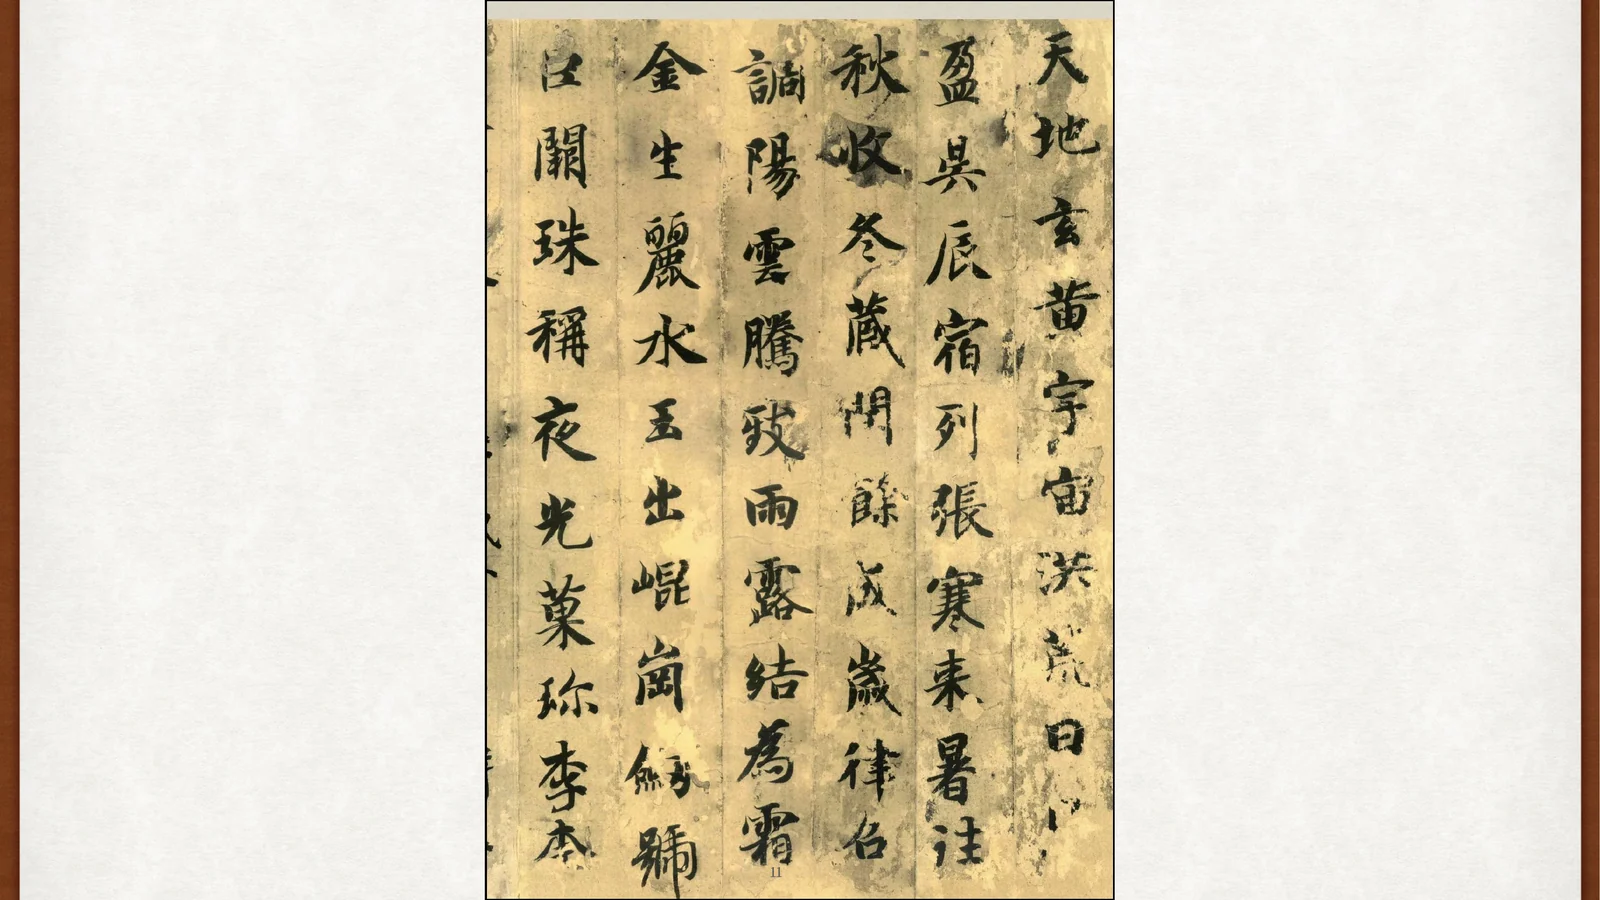 天地玄黄宇宙洪荒日
盈昃辰宿列張寒来暑往
秋收冬蔵閏餘成歳律召
調陽雲騰致雨露結為霜
金生麗水玉出崐崗劔號
巨闕珠稱夜光菓珎李柰
11